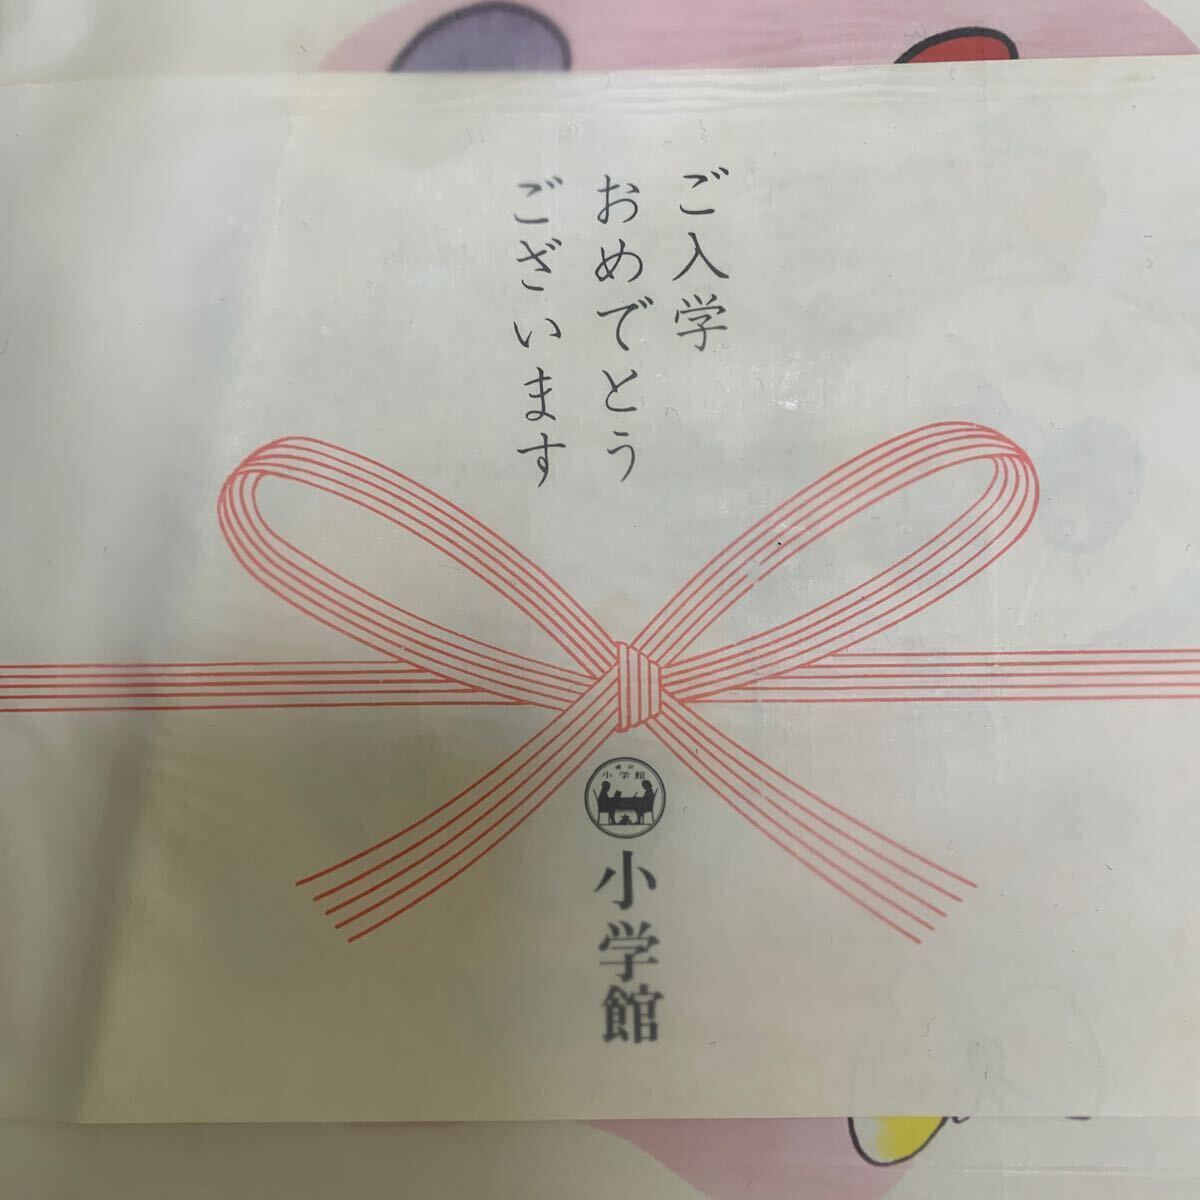 ご入学
おめでとう
ございます
東京
小学館
小学館